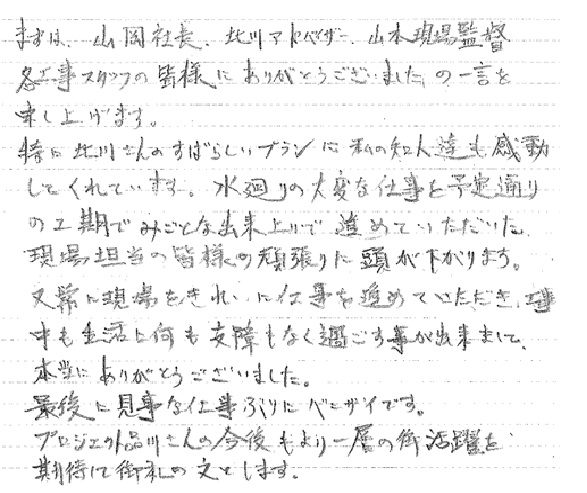 まずは、山岡社長、北川アドバイザー、山本現場監督
各工事スタッフの皆様にありがとうございましたの一言を
申し上げます。
特に北川さんのすばらしいプランに私の知人達も感動
してくれています。水廻りの大変な仕事を予定通り
の工期でみごとな出来上りで進めていただいた
現場担当の皆様の頑張りに頭が下がります。
又常に現場をきれいに仕事を進めていただき、工事
中も生活に何も支障もなく過ごす事が出来まして、
本当にありがとうございました。
最後に見事な仕事ぶりにバンザイです。
プロジェクト品川さんの今後もより一層の御活躍を
期待して御礼の文とします。